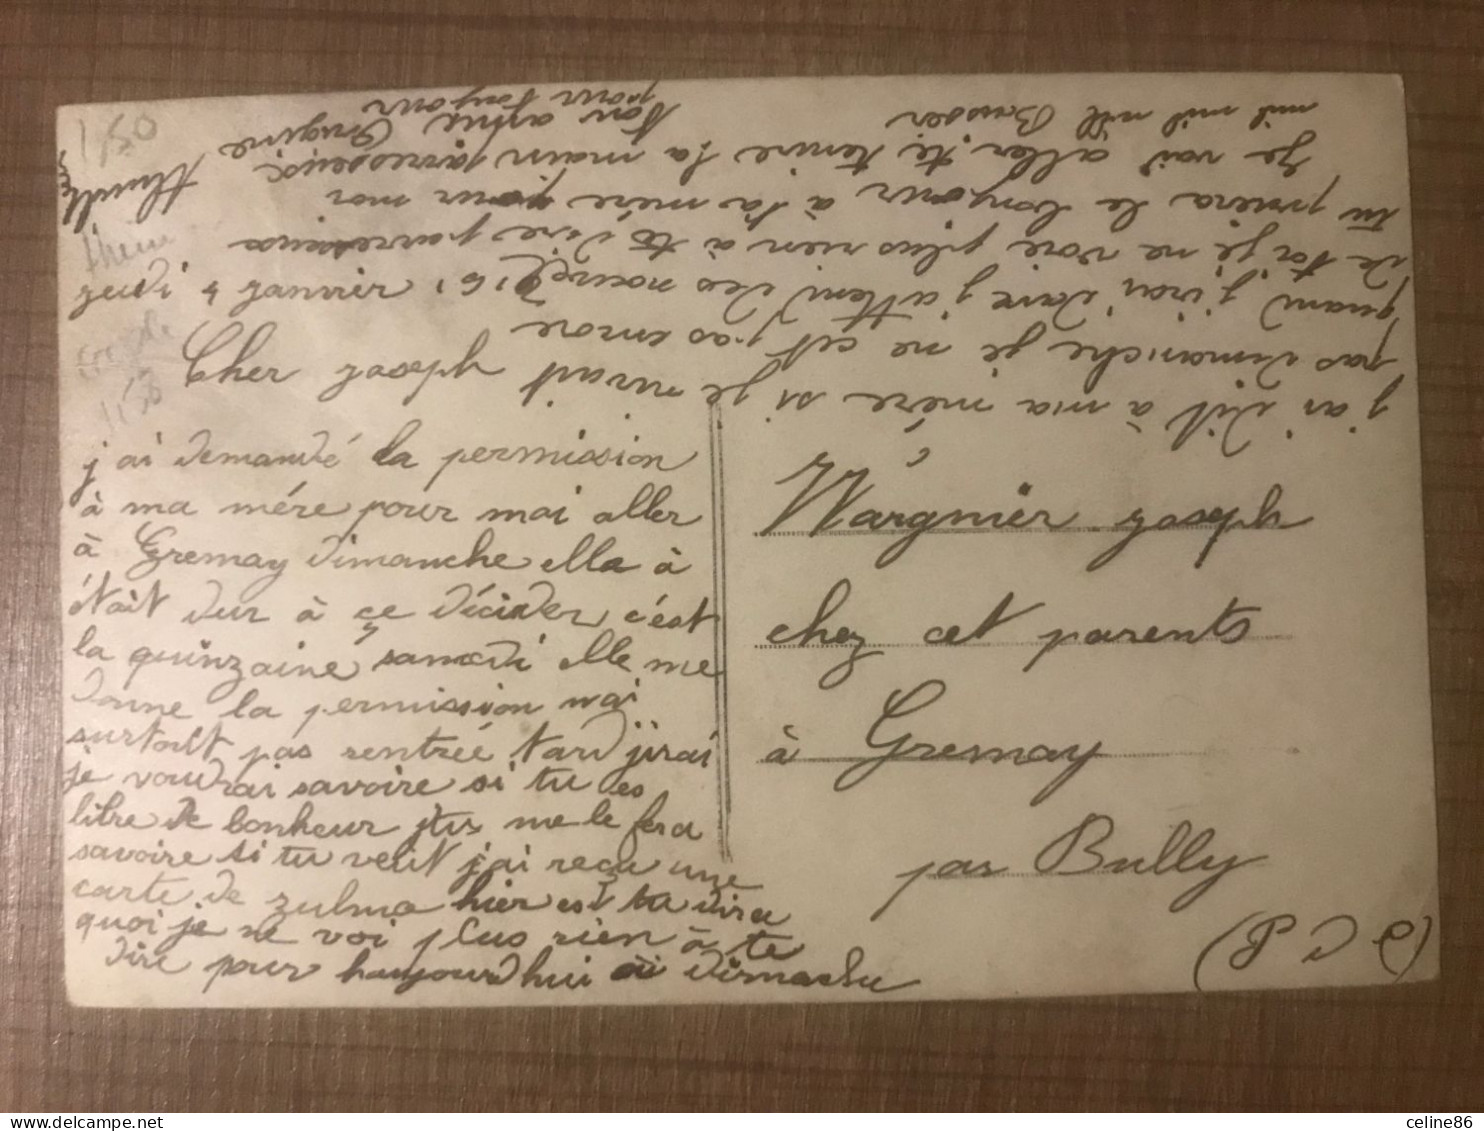 1,50
jeudi 4 Janvier 61
Cher Joseph
j'ai demandé la permission
à ma mére pour mai aller
à Gremay dimanche elle à
était dur à ce décider c'est
la quinzaine samedi elle me
donne la permission mai
surtout pas rentrée tard j'irai
je voudrai savoire si tu es
libre de bonheur me le fera
savoire si tu veut j'ai reçu une
carte de zulma hier est ta dira
quoi je ne voi plus rien à te
dire pour haujourdhui à dimache
Wargnier Joseph
chez cet parents
à Grenay
par Bully
j'ai dit à ma mére si je n'irait
pas dimanche je ne cet pas encore
quand j'irai j'attend des nouvel
de toi je ne voie plus rien à te dire
tu priera le bonjour à ta mére pour moi
Je vai aller te tenire la main
mil mil mill Baiser
Ton amie
pour toujour
1,50
celine86